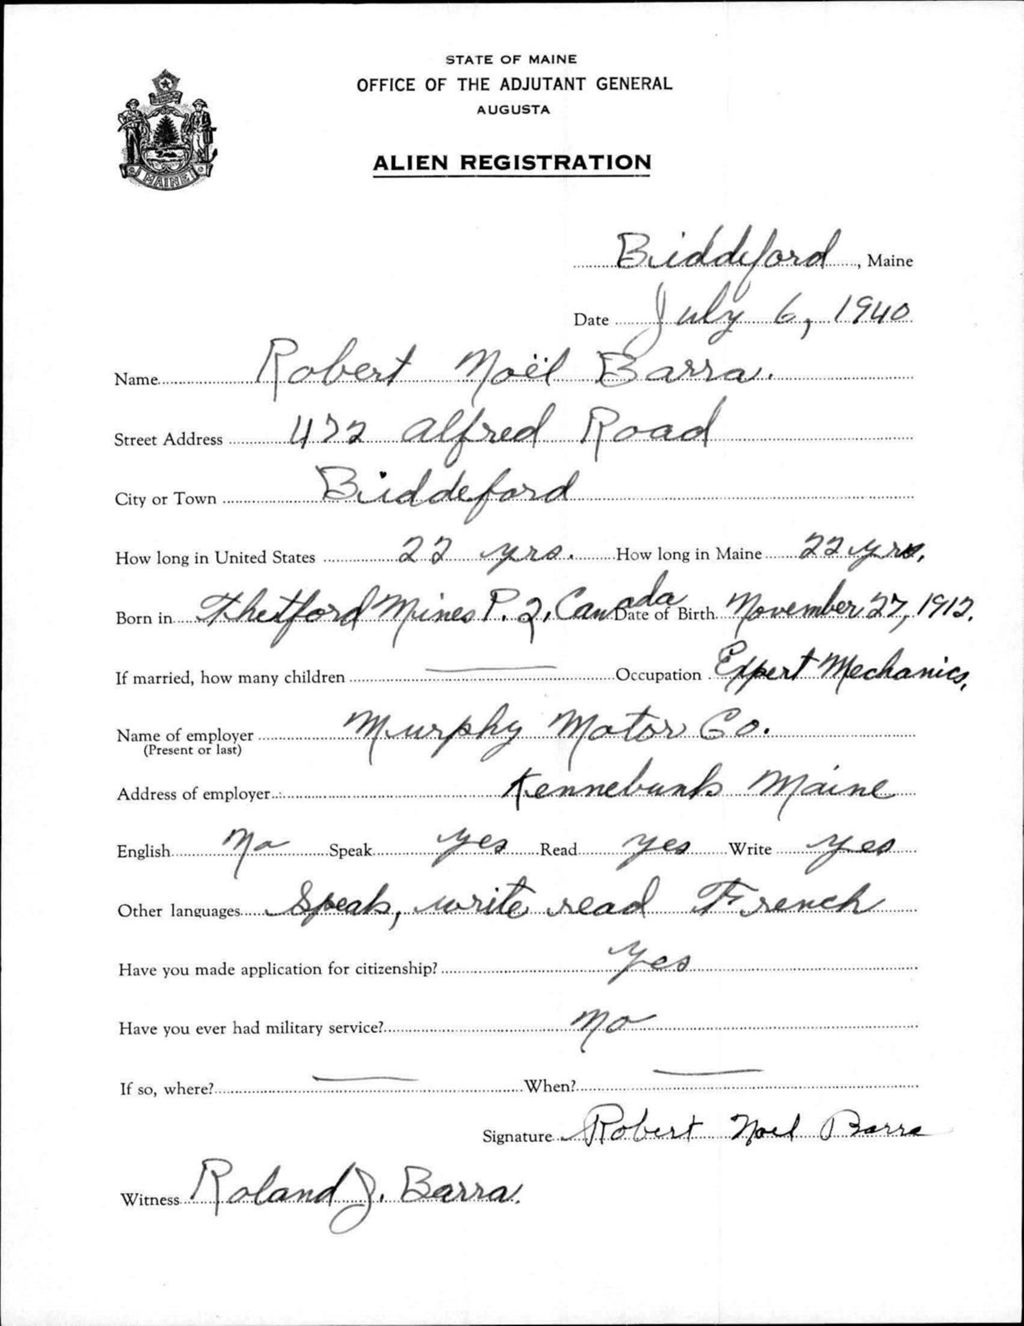 STATE OF MAINE
OFFICE OF THE ADJUTANT GENERAL
AUGUSTA
MAINE
ALIEN REGISTRATION
Biddeford, Maine
Date July 6, 1940
Name Robert Noël Barra.
Street Address 472 Alfred Road
City or Town Biddeford
How long in United States 22 yrs. How long in Maine 22 yrs.
Born in Thetford Mines P. Q. Canada Date of Birth November 27, 1912.
If married, how many children — Occupation Expert Mechanics.
Name of employer Murphy Motor Co.
(Present or last)
Address of employer Kennebunk Maine
English No Speak yes Read yes Write yes
Other languages Speak, write read French
Have you made application for citizenship? Yes
Have you ever had military service? No
If so, where? — When? —
Signature Robert Noel Barra
Witness Roland J. Barra.